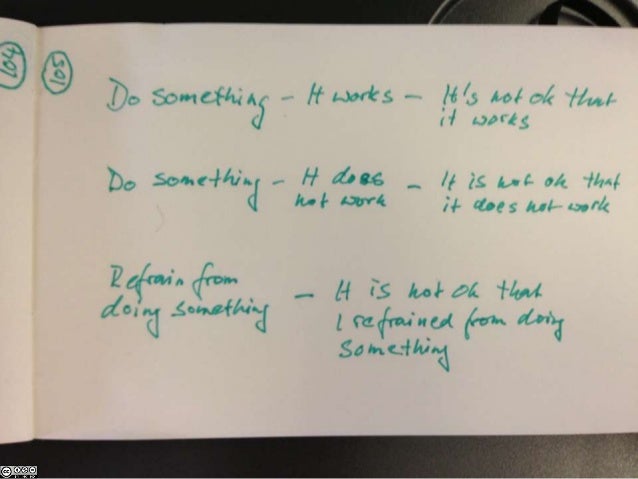 104
105
Do something – It works – It's not ok that
it works
Do something – It does – It is not ok that
not work it does not work
Refrain from
doing something – It is not ok that
I refrained from doing
something